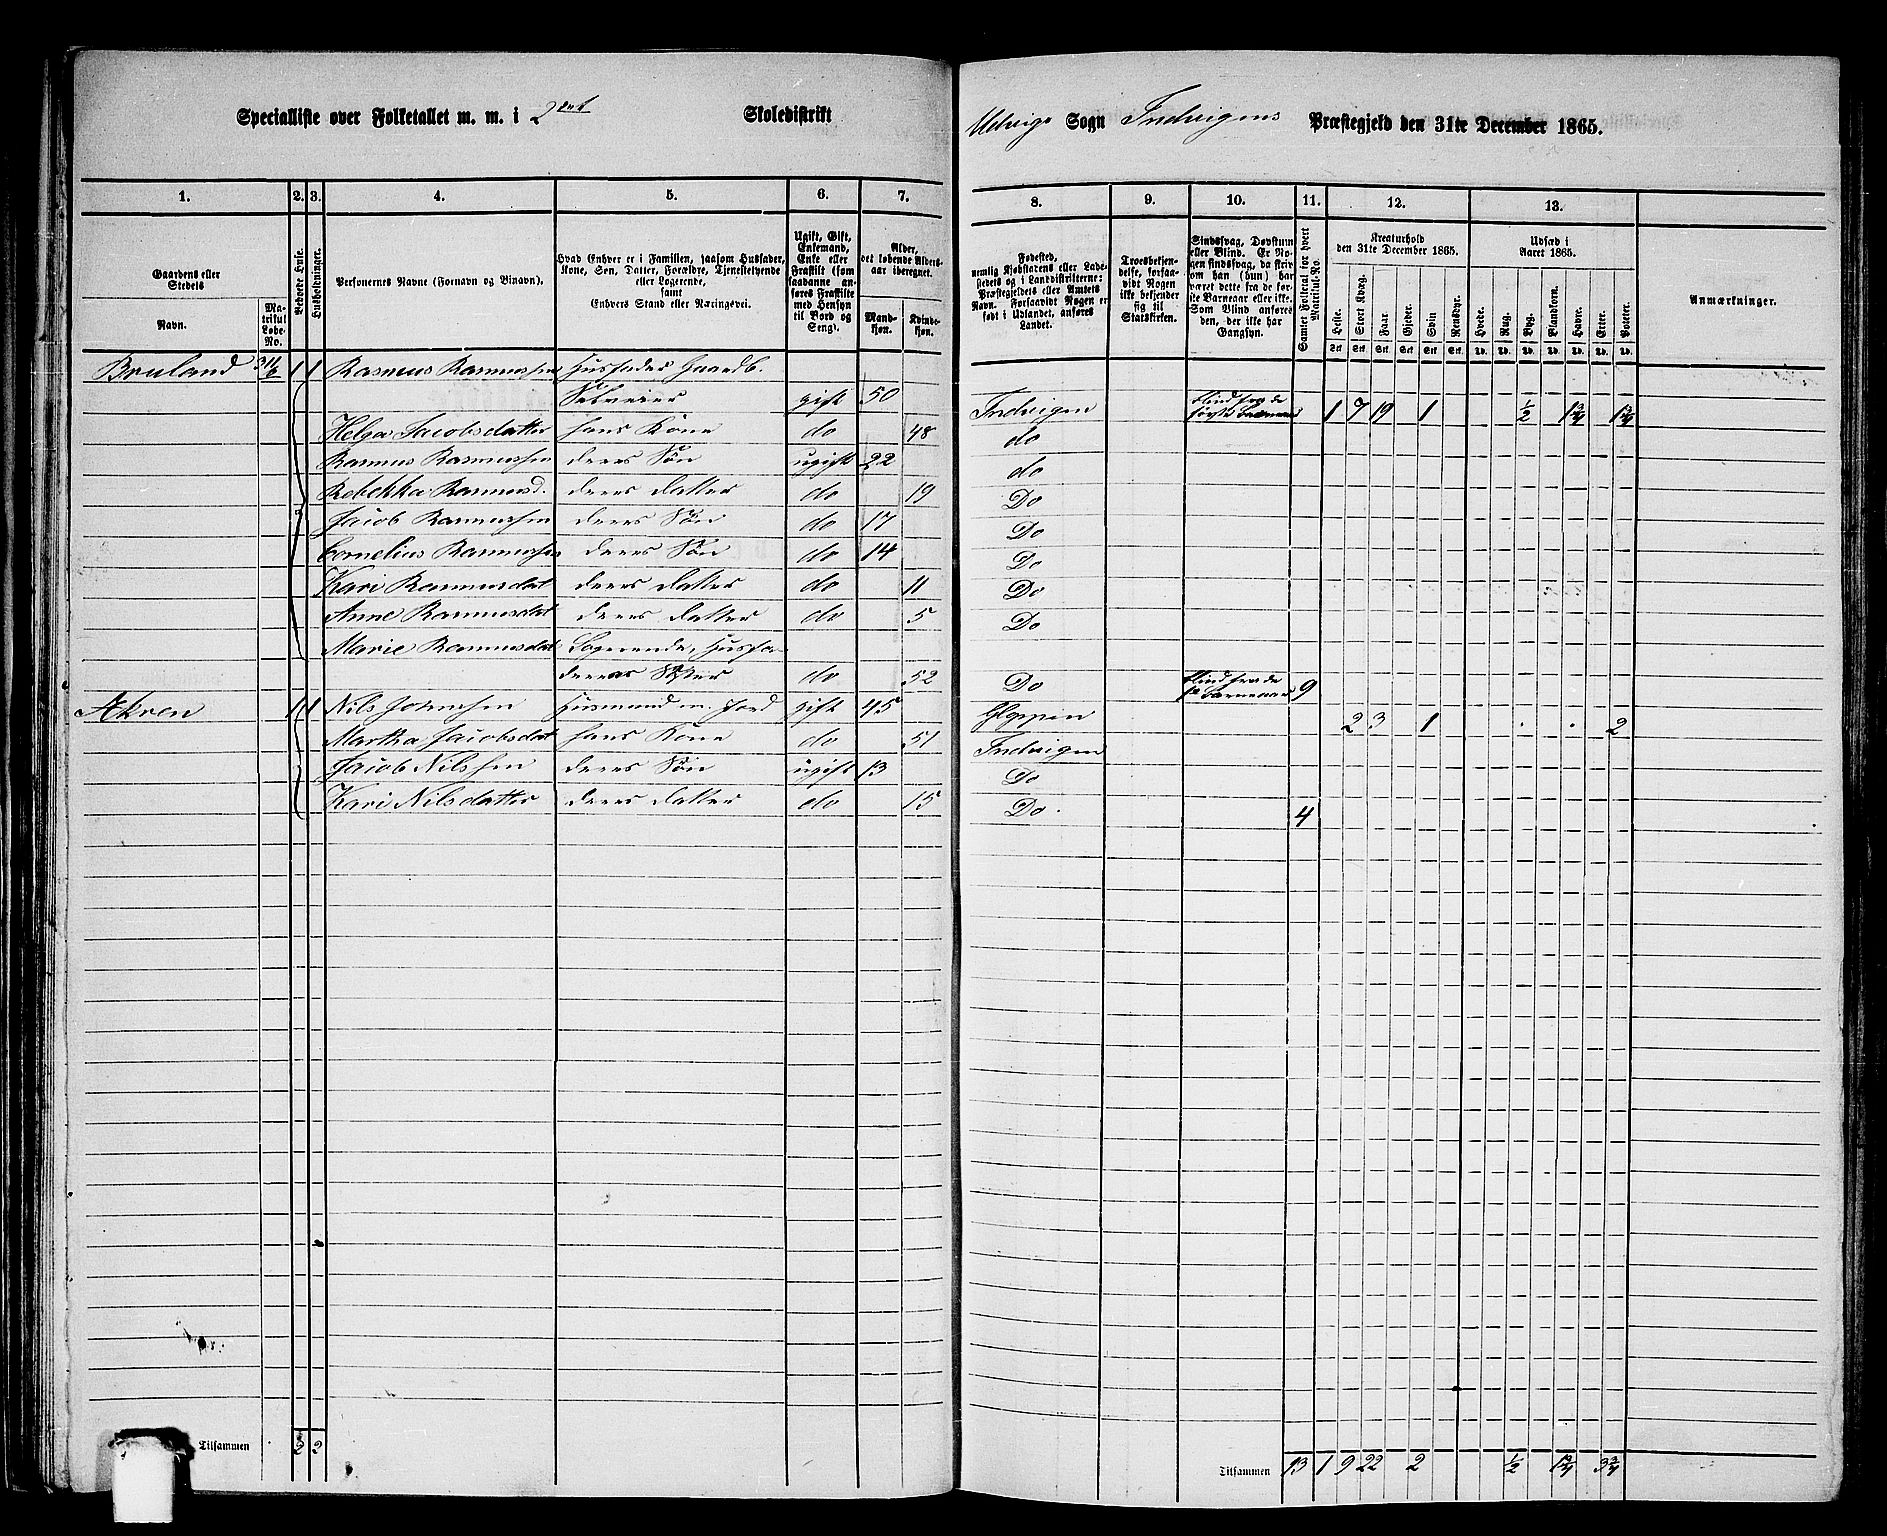 Specialliste over Folketallet m. m. i 2det Skoledistrikt
Utvigs Sogn Indvigens Præstegjeld den 31te December 1865.
1. 2. 3. 4. 5. 6. 7.
8. 9. 10. 11. 12. 13.
Gaardens eller Stedets
Navn.
Matrikul Løbe-No.
Beboede Huse.
Husholdninger.
Personernes Navne (Fornavn og Tilnavn).
Hvad Enhver er i Familien, saasom Husfader,
Kone, Søn, Datter, Forældre, Tjenestetyende
eller Logerende,
samt
Enhvers Stand eller Næringsvei.
Ugift, Gift,
Enkemand,
Enke eller
Fraskilt (som
saadanne an-
føres Fraskilte
med Hensyn
til Bord og
Seng).
Alder,
det løbende Alders-
aar iberegnet.
Mand-
kjøn.
Kvinde-
kjøn.
Fødested,
nemlig Kjøbstadens eller Lade-
stedets og i Landdistrikterne:
Præstegjeldets eller Amtets
Navn. Forsaavidt Nogen er
født i Udlandet, anføres
Landet.
Troesbekjen-
delse, forsaa-
vidt Nogen
ikke bekjender
sig til
Statskirken.
Sindssvag, Døvstum
eller Blind. Er No-
gen sindssvag, da skriv
om han (hun) har
været dette fra de før-
ste Barneaar eller ikke.
Som Blind anføres
den, der ikke har
Gangsyn.
Samlet Folketal for hvert Matrikul-No.
Kreaturhold
den 31te December 1865.
Heste. Stort Kvæg. Faar. Gjeder. Svin Rensdyr.
Stk. Stk. Stk. Stk. Stk. Stk.
Udsæd i
Aaret 1865.
Hvede. Rug. Byg. Blandkorn. Havre. Erter. Poteter.
Td. Td. Td. Td. Td. Td. Td.
Anmærkninger.
Bruland 1 1 Rasmus Rasmussen Husfader Gaardb.
Selveier gift 50 Indvigen blind fra de første Barneaar 1 7 19 1 1/2 1 3/4 1 3/4
Helga Jacobsdatter hans Kone do 48 do
Rasmus Rasmussen deres Søn ugift 22 do
Rebekka Rasmusd. deres Datter do 19 Do
Jacob Rasmussen deres Søn do 17 Do
Cornelius Rasmussen deres Søn do 14 Do
Kari Rasmusdat deres Datter do 11 Do
Anne Rasmusdat deres Datter do 5 Do
Marie Rasmusdat Logerende, Husfa-
derens Søster do 52 Do blind fra de Barneaar 9
Akren 1 1 Nils Husmand m. Jord gift 45 Gloppen 2 3 1 2
Martha Jacobsdat hans Kone do 51 Indvigen
Jacob Nilssen deres Søn ugift 13 Do
Kari Nilsdatter deres Datter do 15 Do 4
Tilsammen 2 2
Tilsammen 13 1 9 22 2 1/2 1 3/4 3 3/4